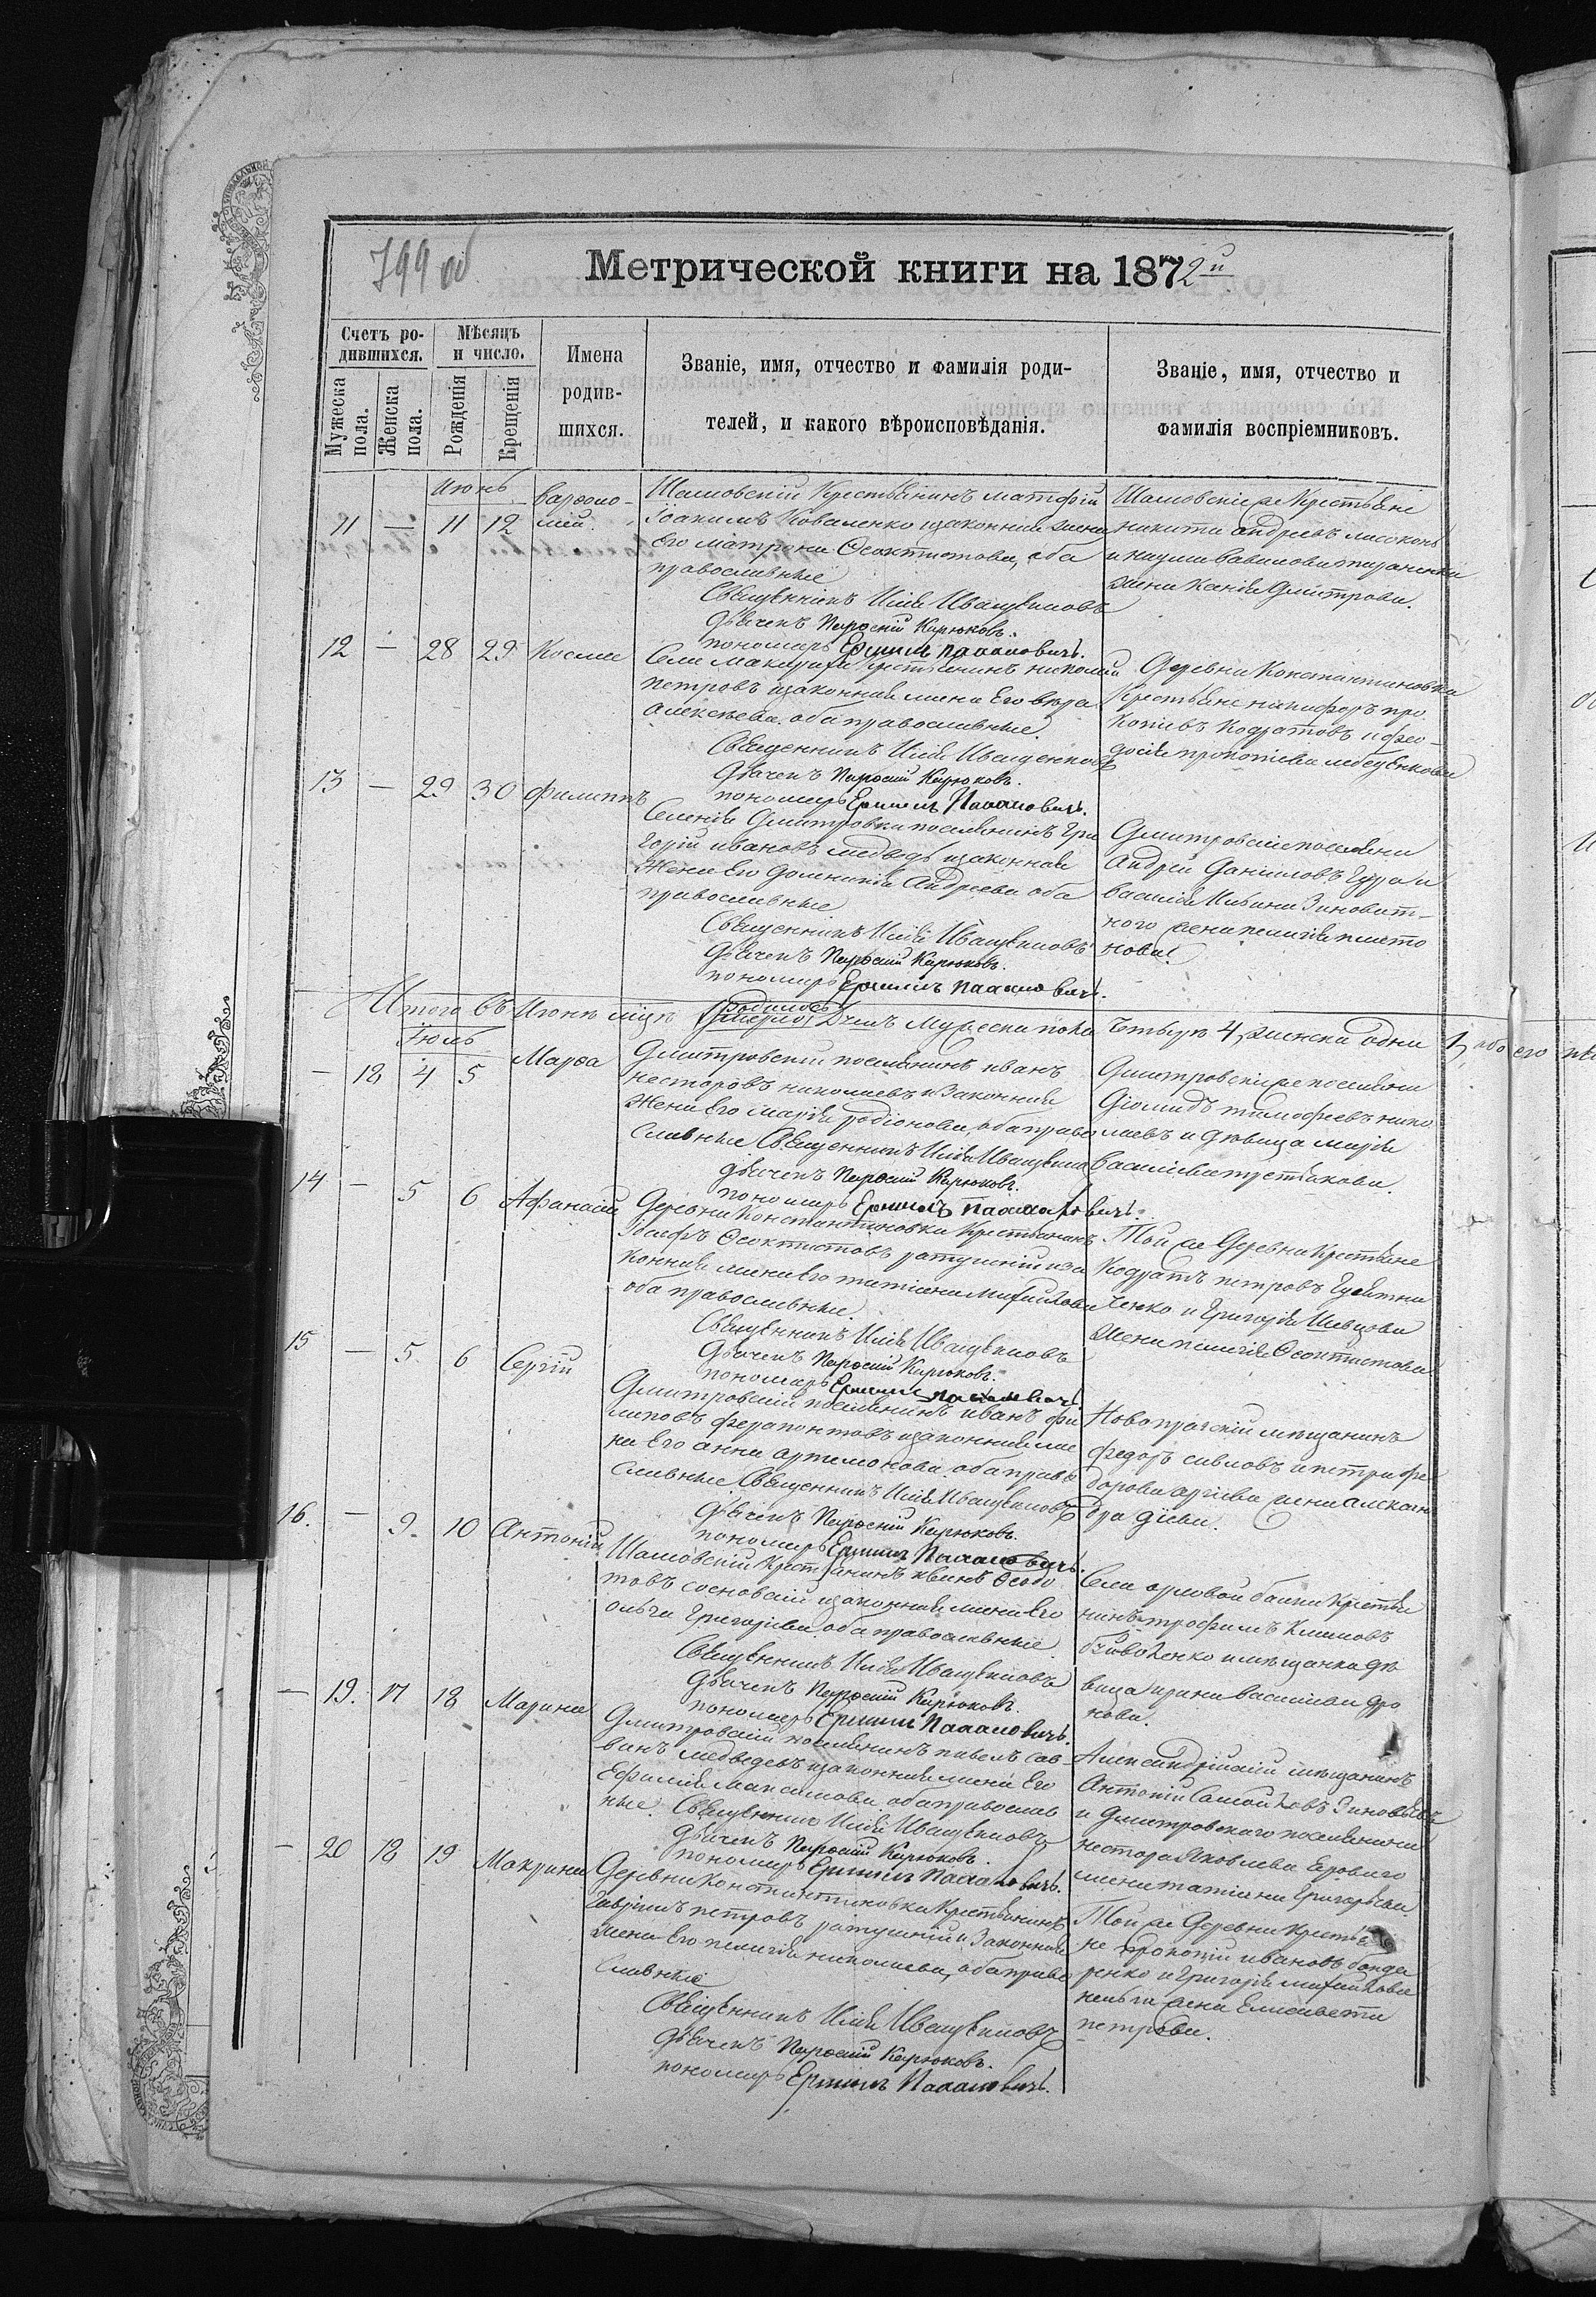 799 об
Метрической книги на 1872й
Счетъ ро-
дившихся.
Мѣсяцъ
и число.
Мужеска
пола.
Женска
пола.
Рожденія
Крещенія
Имена
родив-
шихся.
Званіе, имя, отчество и фамилія роди-
телей, и какого вѣроисповѣданія.
Званіе, имя, отчество и
фамилія воспріемниковъ.
Июнь
11 — 11 12 Варѳоло-
мій.
Шамовскій Крестьянинъ Матфій
Іоакимъ Коваленко и законная жена
Его Матрона Ѳеоктистова, оба
православные
Священникъ Илія Иващенковъ
Дьячекъ Пароеній Кирюковъ.
пономарь
Шамовскіе Крестьяне
никита андреевъ
жена Дмитрова.
12 — 28 29 Косма
Села крестьянинъ николай
петровъ и законная жена Его вѣра
алексѣева, оба православные.
Священникъ Илія Иващенковъ
Дьячекъ Пароеній Кирюковъ.
пономарь
Деревни Константиновки
Крестьяне никифоръ про
копіевъ Кодратовъ и фео-
досія прокопіева лебеденкова
13 — 29 30 филиппъ
Селенія Дмитровки поселянинъ Гри
горій ивановъ медведь и законная
жена Его Домникія Андреева оба
православные
Священникъ Илія Иващенковъ
Дьячекъ Пароеній Кирюковъ.
пономарь
Дмитровскіе поселяне
Андрей Даниловъ и
василія Ильина Зиноват-
ного жена пелагія плато
нова.
Итого въ Июнѣ мцѣ родилось мужеска пола четыре 4, женска одна 1, обоего
Іюль
— 18 4 5 Марѳа
Дмитровскій поселянинъ иванъ
несторовъ николаевъ и Законная
жена Его марія родіонова, оба право
славные Священникъ Илія
Дьячекъ Пароеній Кирюковъ.
пономарь
Дмитровскіе поселяне
Діомидъ тимофеевъ нико
лаевъ и дѣвица марія
василіева третьякова.
14 — 5 6 Афанасій
Деревни Константиновки Крестьянинъ
Іосифъ Ѳеоктистовъ ратушній и за
конная жена Его татіана Михайлова
оба православные.
Священникъ Илія Иващенковъ
Дьячекъ Пароеній Кирюковъ.
пономарь
Той же Деревни Крестьяне
Кодратъ петровъ
ченко и Григорія Шевцова
жена пелагія Ѳеоктистова
15 — 5. 6 Сергій
Дмитровскій поселянинъ иванъ фи
липовъ ферапонтовъ и законная же
на Его анна артемонова, оба право
славные Священникъ Илія Иващенковъ
Дьячекъ Пароеній Кирюковъ.
пономарь
Новопражскій мѣщанинъ
федоръ и петра фе
дорова жена алексан
дра
16. — 9. 10 Антоній
Шамовскій Крестьянинъ
товъ сосновскій и законная жена Его
ольга Григорьева оба православные
Священникъ Илія Иващенковъ
Дьячекъ Пароеній Кирюковъ.
пономарь
Села орловой балки Крестья
нинъ трофимъ Климовъ
и мѣщанка дѣ
вица ирина василіева дро
нова.
— 19. 17 18 Марина
Дмитровскій поселянинъ павелъ сав-
винъ медведевъ и законная жена Его
Ефимія Максимова оба православ
ные. Священникъ Илія Иващенковъ
Дьячекъ Пароеній Кирюковъ.
пономарь
Александрійскій мѣщанинъ
Антоній Самойловъ Зиновьевъ
и Дмитровскаго поселянина
нестора Яковлева
жена татіана Григорьева.
— 20 18 19 Макрина
Деревни Константиновки Крестьянинъ
Гавріилъ петровъ ратушній и Законная
жена Его пелагія николаева, оба право
славные
Священникъ Илія Иващенковъ
Дьячекъ Пароеній Кирюковъ.
пономарь
Той же Деревни Крестья
не прокопій ивановъ бонда
ренко и Григорія михайлова
жена Елисавета
петрова.